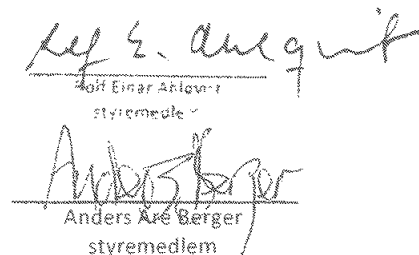 Leif E. Ahlqvist
Leif Einar Ahlqvist
styremedlem
Anders Berger
Anders Are Berger
styremedlem